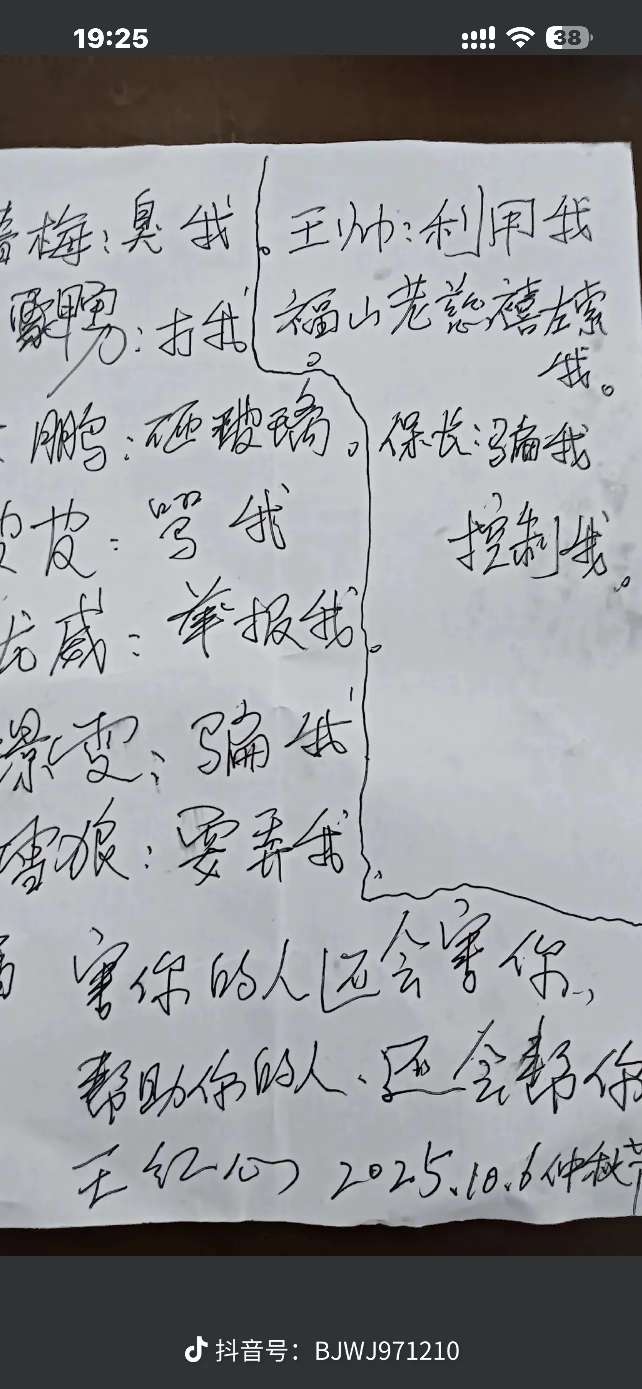 19:25
38
梅：臭我。
勇：打我
鹏：砸玻璃。
皮：骂我
龙威：举报我
景雯：骗我
雪狼：耍弄我
王帅：利用我
福山老慈禧
我。
保长：骗我
控制我。
害你的人还会害你，
帮助你的人、还会帮你
王红心 2025.10.6仲秋节
抖音号：BJWJ971210